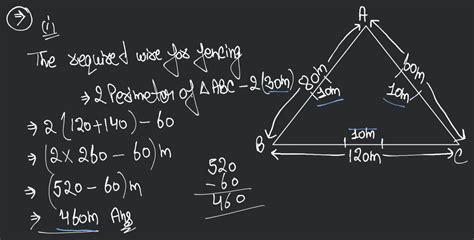 → (i)
The required wire for fencing
⇒ 2 Perimeter of △ABC - 2(30m)
⇒ 2(120+140) - 60
⇒ (2 x 260 - 60)m
⇒ (520 - 60)m
⇒ 460m Ans
520
-60
460
A
80m
60m
10m
10m
10m
B
C
120m